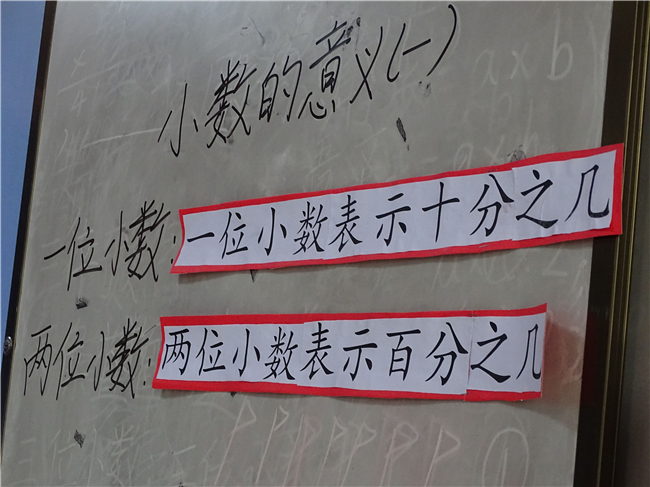 小数的意义(一)
一位小数:一位小数表示十分之几
两位小数:两位小数表示百分之几